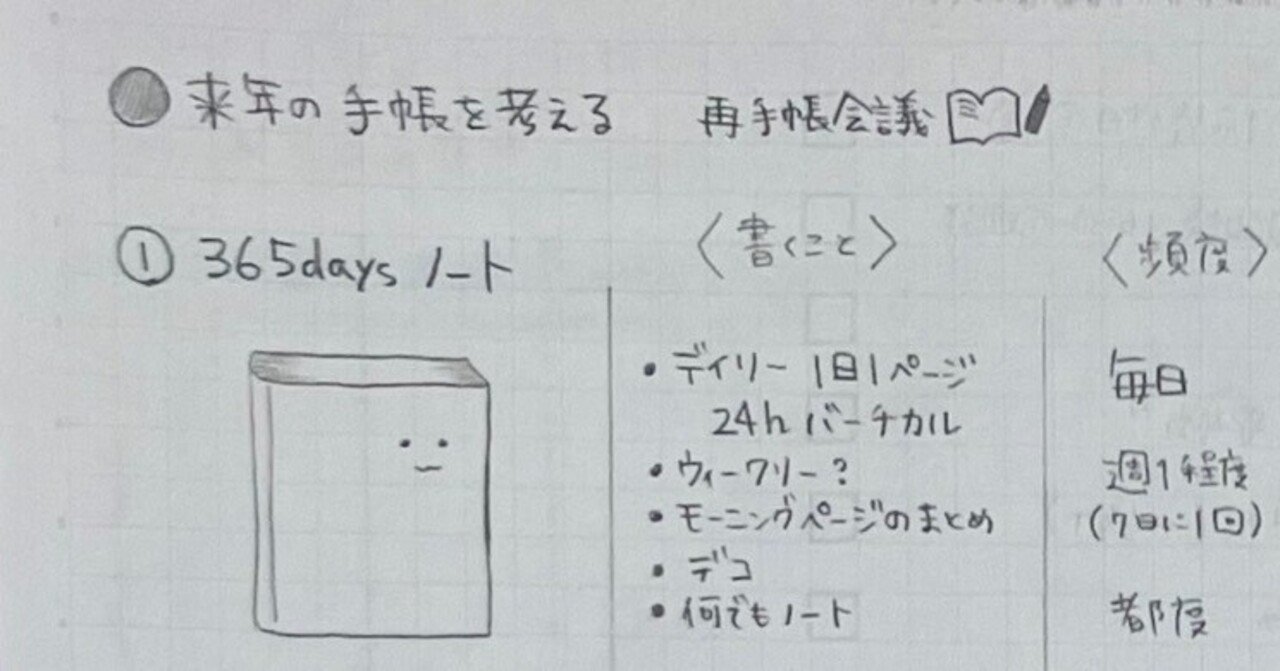 来年の手帳を考える 再手帳会議
① 365days ノート
〈書くこと〉
〈頻度〉
・デイリー 1日1ページ
24h バーチカル
毎日
・ウィークリー?
週1程度
・モーニングページのまとめ
(7日に1回)
・デコ
・何でもノート
都度